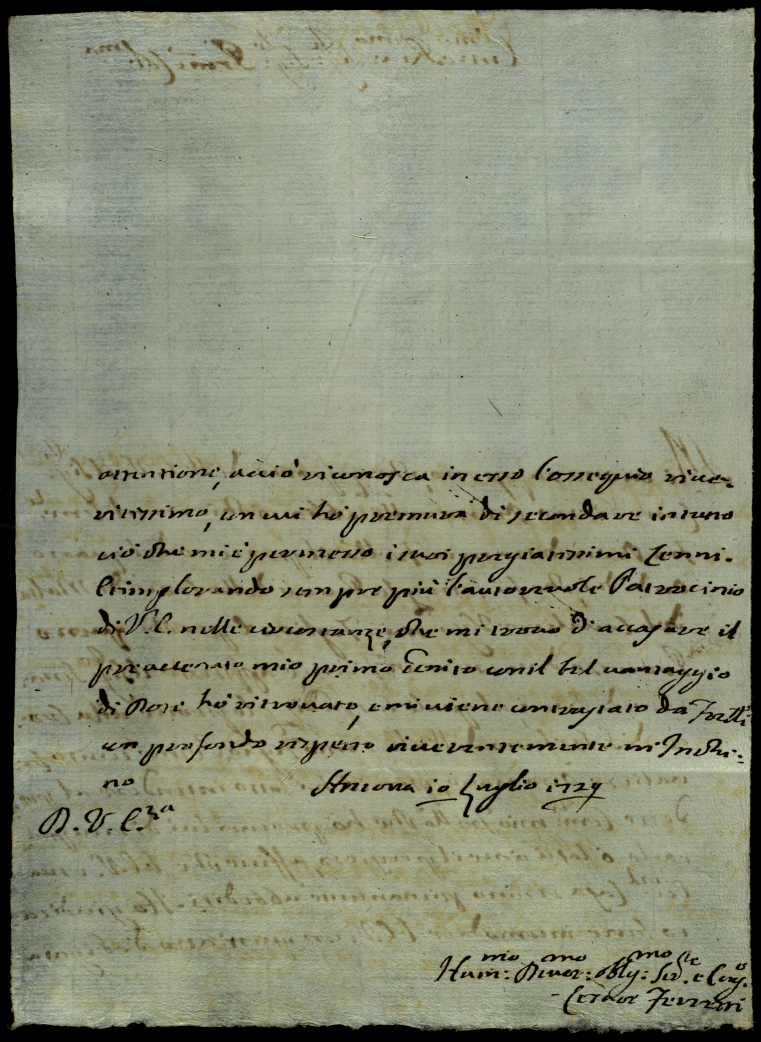 attentione, acciò riconosca in esso l'ossequio rive-
ritissimo, con cui hò premura di secondare in tutto
ciò che mi è permesso i suoi pregiatissimi Cenni.
Et implorando sempre più l'autorevole Patrocinio
di V. E. nelle circostanze, che mi trovo di accasare il
preaccenato mio primo Genito con il bel vantaggio
di Dote hò ritrovato, e mi viene contrastato da
con profondo rispetto riverentemente m'Inchi-
no
Ancona 10 Luglio 1729
D. V. E.za
Hum:mo Devot:mo Obbl:mo
Ferretti